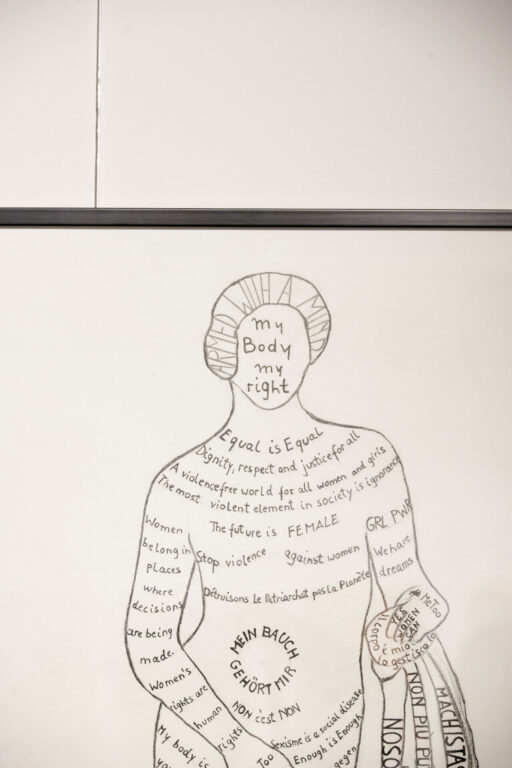 ARMED WITH A MIND
my
Body
my
right
Equal is Equal
Dignity, respect and justice for all
A violencefree world for all women and girls
The most violent element in society is ignorance
The future is FEMALE
GRL PWR
Stop violence against women
We have
dreams
Détruisons le Patriarchat pas la Planète
Women
belong in
places
where
decisions
are being
made.
Women's
rights are
human
rights
MEIN BAUCH
GEHÖRT MIR
NON c'est NON
# MeToo
YES
WOMEN
CAN
Il corpo
é mio
lo gestisco
Sexisme is a social disease
Enough is Enough
gegen
Too
My body is
NOSO
NON PIÙ PU
MACHISTA